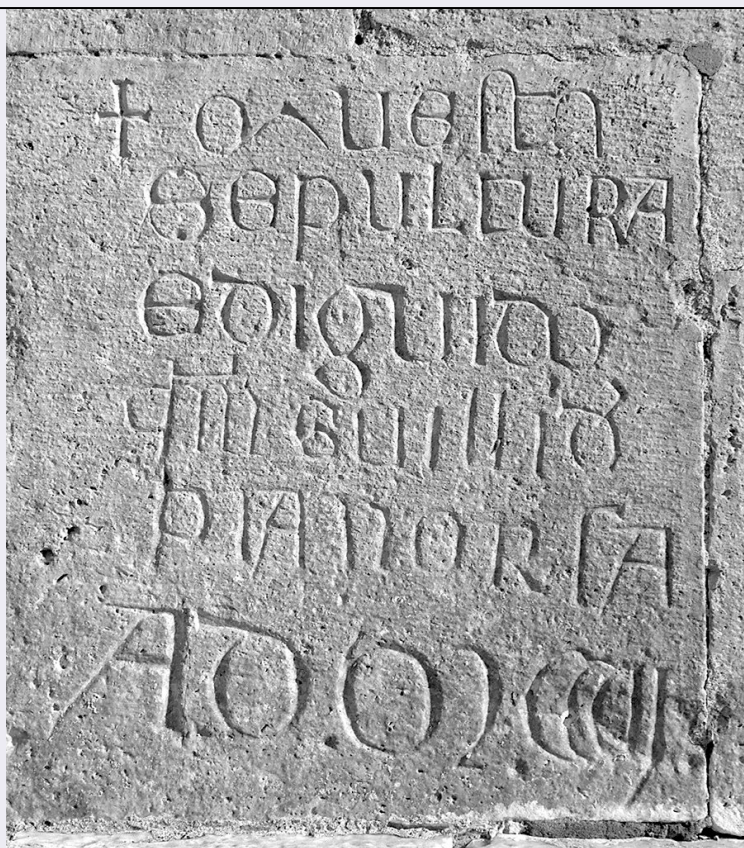 + QUESTA
SEPULTURA
E DI GUIDO
GUILLI D
PIANORSA
AD MCCCII